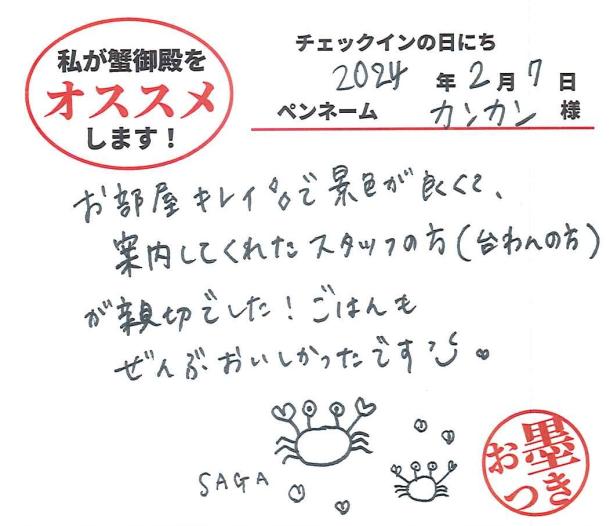 私が蟹御殿を
オススメ
します！
チェックインの日にち
2024 年 2 月 7 日
ペンネーム カンカン 様
お部屋キレイで景色が良くて、
案内してくれたスタッフの方(台わんの方)
が親切でした！ごはんも
ぜんぶおいしかったです
SAGA
お墨つき